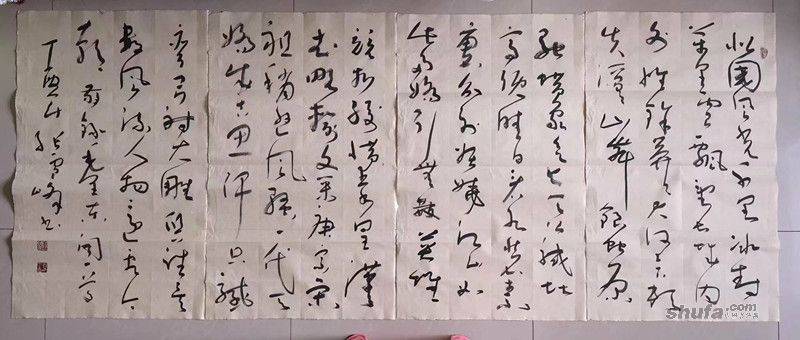 北國風光千里冰封
萬里雪飘望长城内
外惟餘莽莽大河上下頓
失滔滔山舞銀蛇原
驰蜡象欲与天公試比
高須晴日看红装素
裹分外妖嬈江山如
此多嬌引無數英雄
競折腰惜秦皇漢
武略输文采唐宗宋
祖稍逊風騷一代天
嬌成吉思汗只識
弯弓射大雕俱往矣
數風流人物还看今
朝 敬録毛泽东词一首
丁酉年 張雪峰书
shufa.com